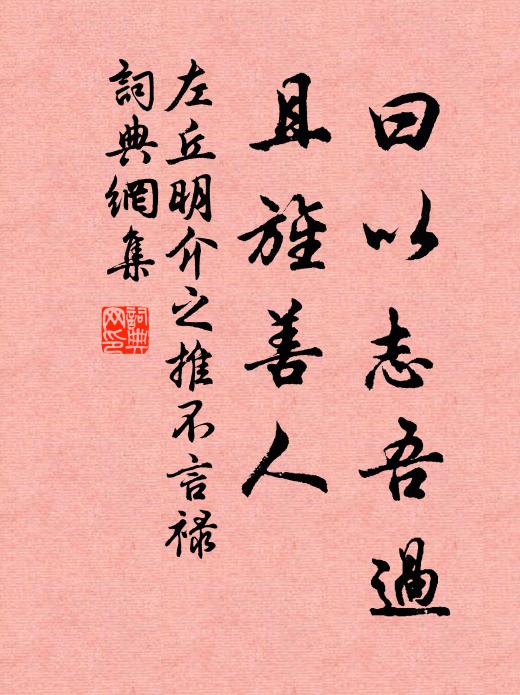 曰以志吾過
且旌善人
左丘明介之推不言禄
詞典網集
詞典网印